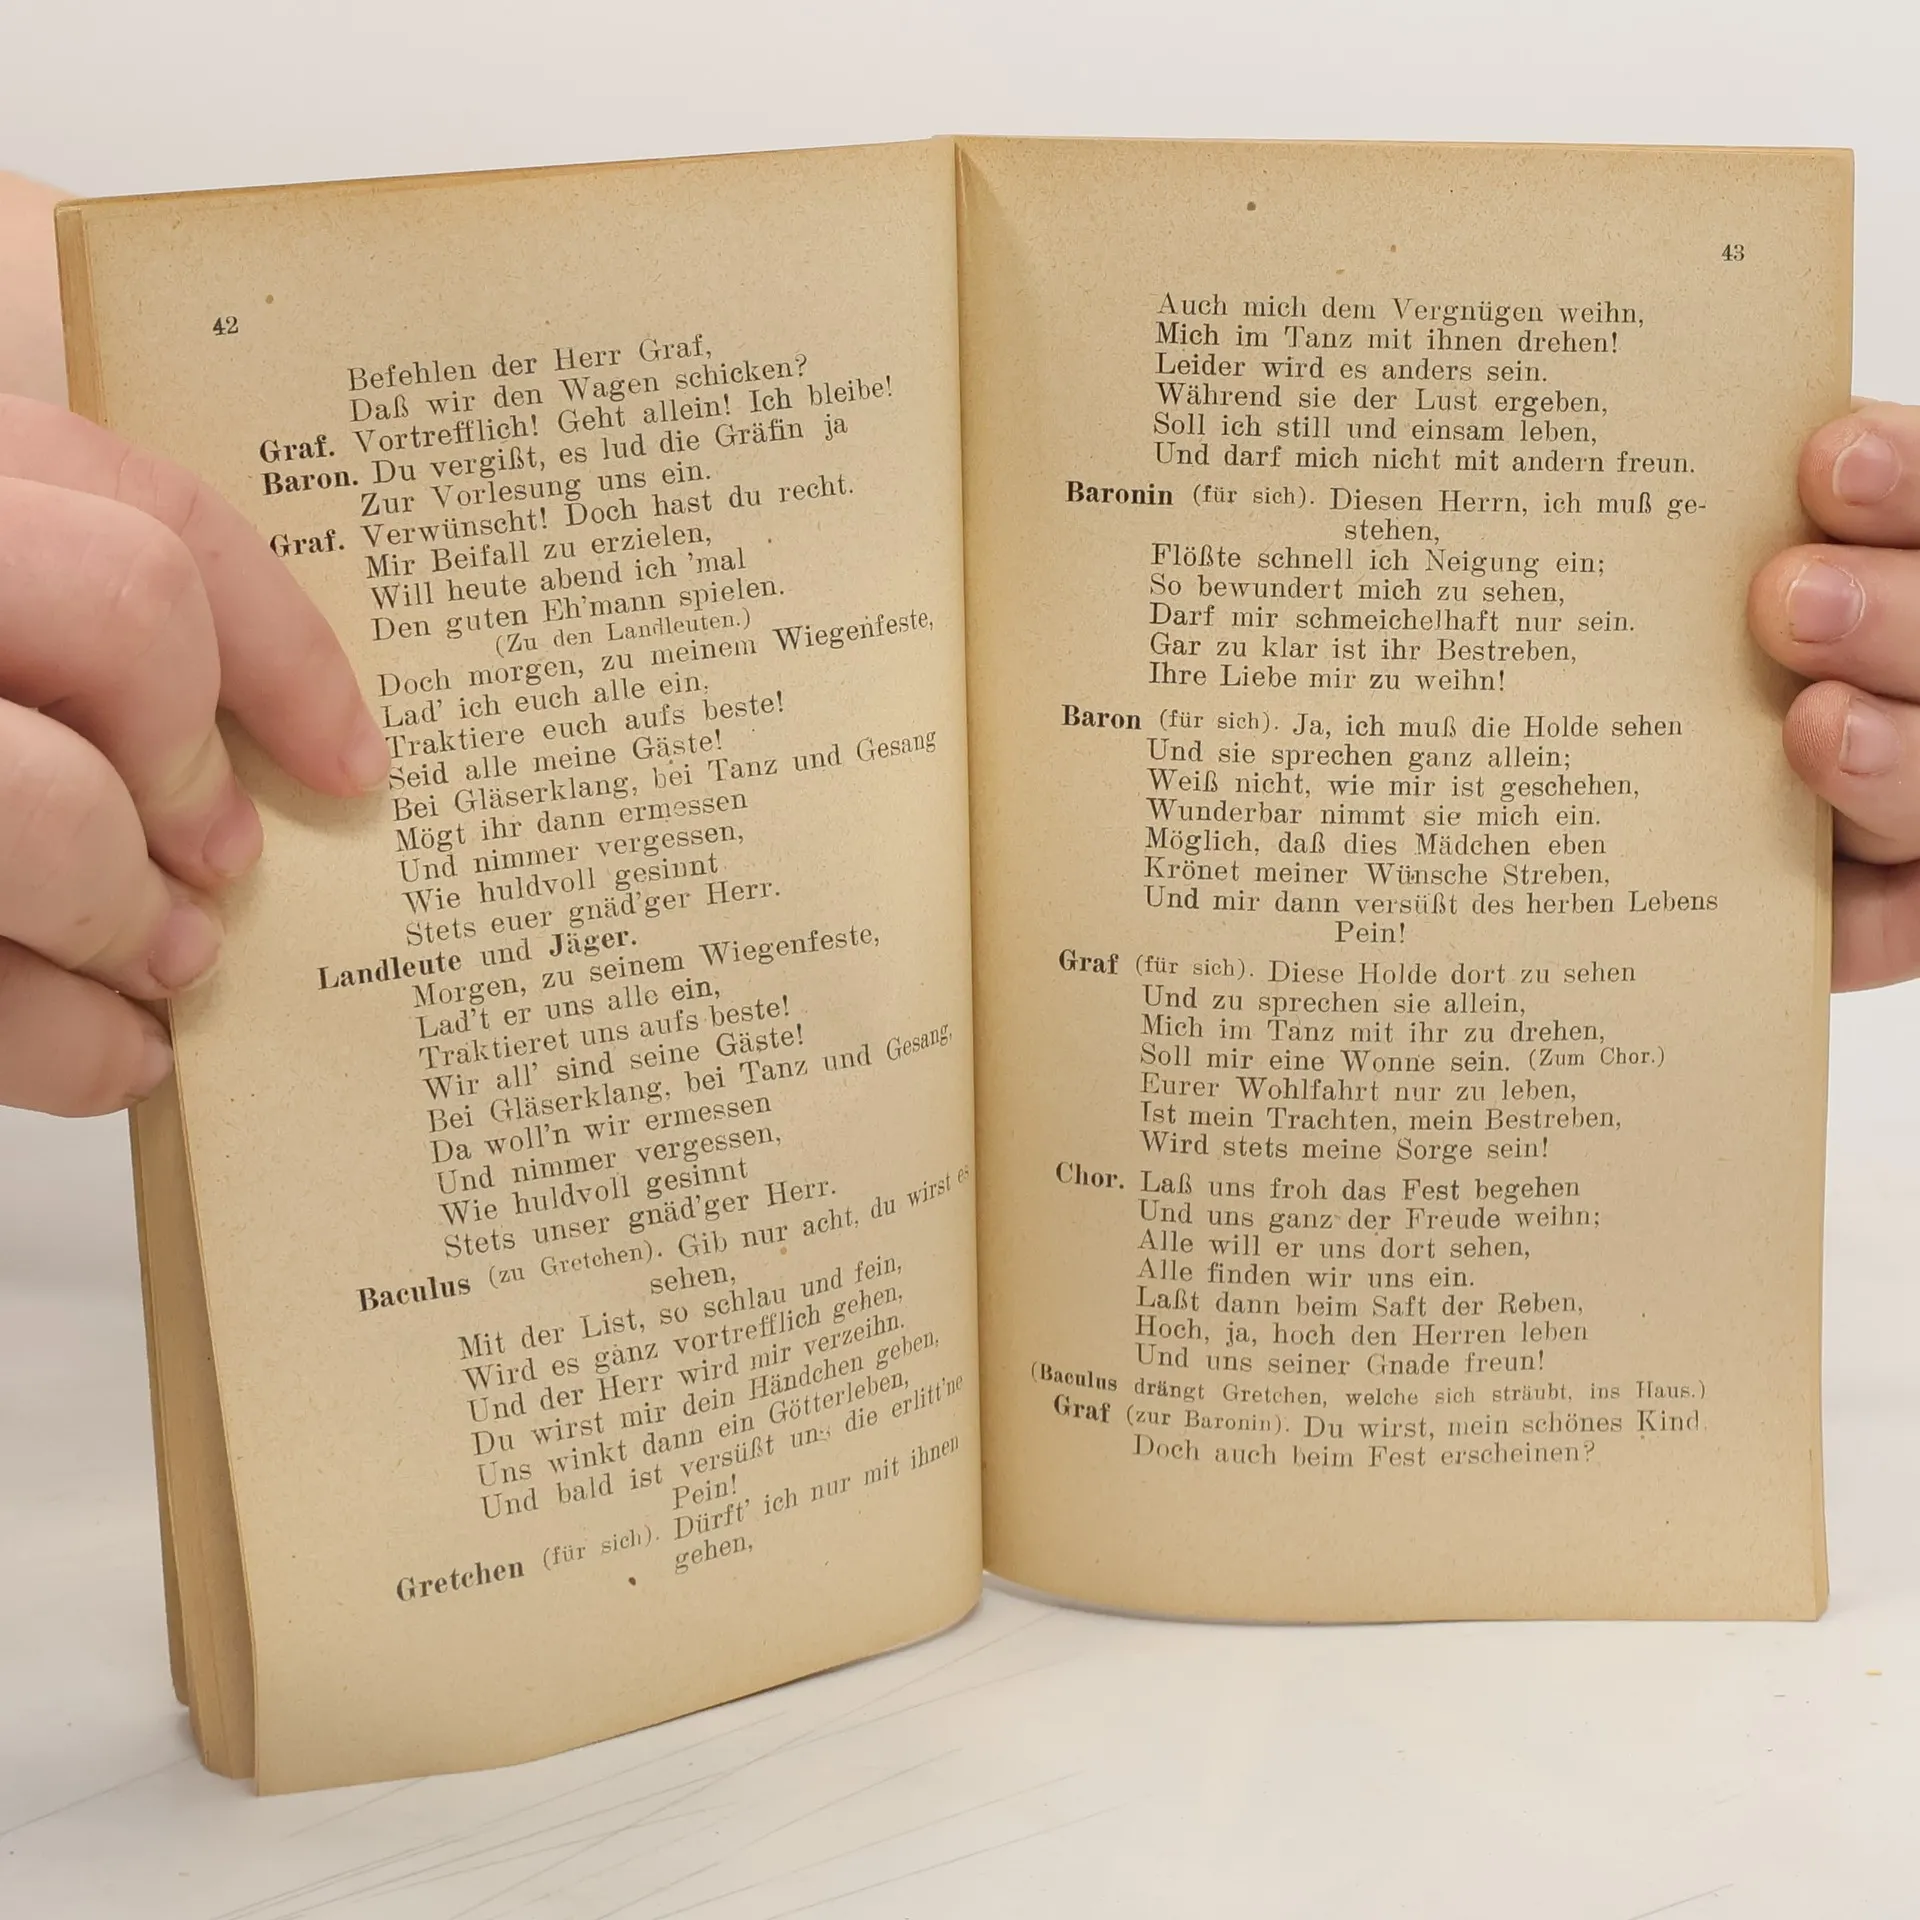 42
Befehlen der Herr Graf,
Daß wir den Wagen schicken?
Graf. Vortrefflich! Geht allein! Ich bleibe!
Baron. Du vergißt, es lud die Gräfin ja
Zur Vorlesung uns ein.
Graf. Verwünscht! Doch hast du recht.
Mir Beifall zu erzielen,
Will heute abend ich 'mal
Den guten Eh'mann spielen.
(Zu den Landleuten.)
Doch morgen, zu meinem Wiegenfeste,
Lad' ich euch alle ein,
Traktiere euch aufs beste!
Seid alle meine Gäste!
Bei Gläserklang, bei Tanz und Gesang
Mögt ihr dann ermessen
Und nimmer vergessen,
Wie huldvoll gesinnt
Stets euer gnäd'ger Herr.
Landleute und Jäger.
Morgen, zu seinem Wiegenfeste,
Lad't er uns alle ein,
Traktieret uns aufs beste!
Wir all' sind seine Gäste!
Bei Gläserklang, bei Tanz und Gesang,
Da woll'n wir ermessen
Und nimmer vergessen,
Wie huldvoll gesinnt
Stets unser gnäd'ger Herr.
Baculus (zu Gretchen). Gib nur acht, du wirst es
sehen,
Mit der List, so schlau und fein,
Wird es ganz vortrefflich gehen,
Und der Herr wird mir verzeihn.
Du wirst mir dein Händchen geben,
Uns winkt dann ein Götterleben,
Und bald ist versüßt uns die erlitt'ne
Pein!
Gretchen (für sich). Dürft' ich nur mit ihnen
gehen,
43
Auch mich dem Vergnügen weihn,
Mich im Tanz mit ihnen drehen!
Leider wird es anders sein.
Während sie der Lust ergeben,
Soll ich still und einsam leben,
Und darf mich nicht mit andern freun.
Baronin (für sich). Diesen Herrn, ich muß ge-
stehen,
Flößte schnell ich Neigung ein;
So bewundert mich zu sehen,
Darf mir schmeichelhaft nur sein.
Gar zu klar ist ihr Bestreben,
Ihre Liebe mir zu weihn!
Baron (für sich). Ja, ich muß die Holde sehen
Und sie sprechen ganz allein;
Weiß nicht, wie mir ist geschehen,
Wunderbar nimmt sie mich ein.
Möglich, daß dies Mädchen eben
Krönet meiner Wünsche Streben,
Und mir dann versüßt des herben Lebens
Pein!
Graf (für sich). Diese Holde dort zu sehen
Und zu sprechen sie allein,
Mich im Tanz mit ihr zu drehen,
Soll mir eine Wonne sein. (Zum Chor.)
Eurer Wohlfahrt nur zu leben,
Ist mein Trachten, mein Bestreben,
Wird stets meine Sorge sein!
Chor. Laß uns froh das Fest begehen
Und uns ganz der Freude weihn;
Alle will er uns dort sehen,
Alle finden wir uns ein.
Laßt dann beim Saft der Reben,
Hoch, ja, hoch den Herren leben
Und uns seiner Gnade freun!
(Baculus drängt Gretchen, welche sich sträubt, ins Haus.)
Graf (zur Baronin). Du wirst, mein schönes Kind,
Doch auch beim Fest erscheinen?